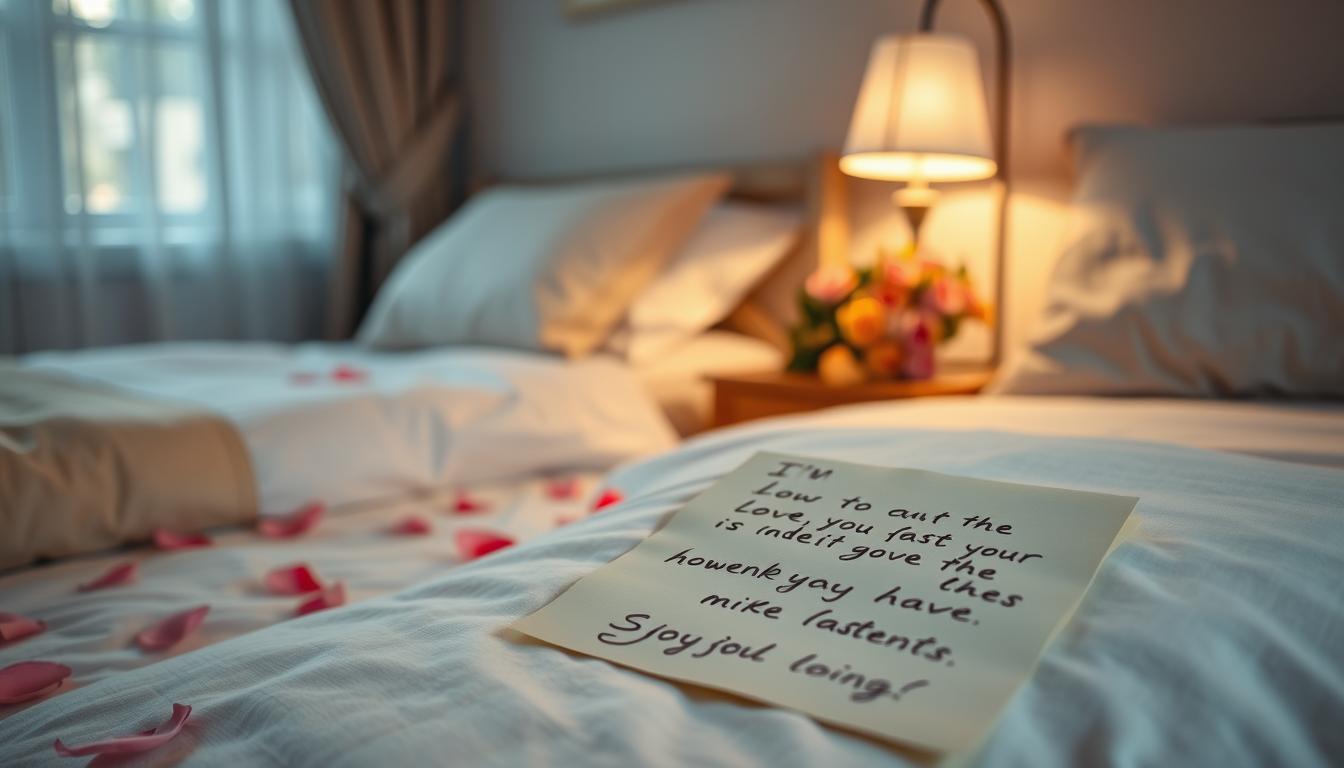 I'M
Low to aut the
Love, you fast your
is indeit gove the
lhes
howenk yay have.
mike lastents.
Sjoy joul loing!